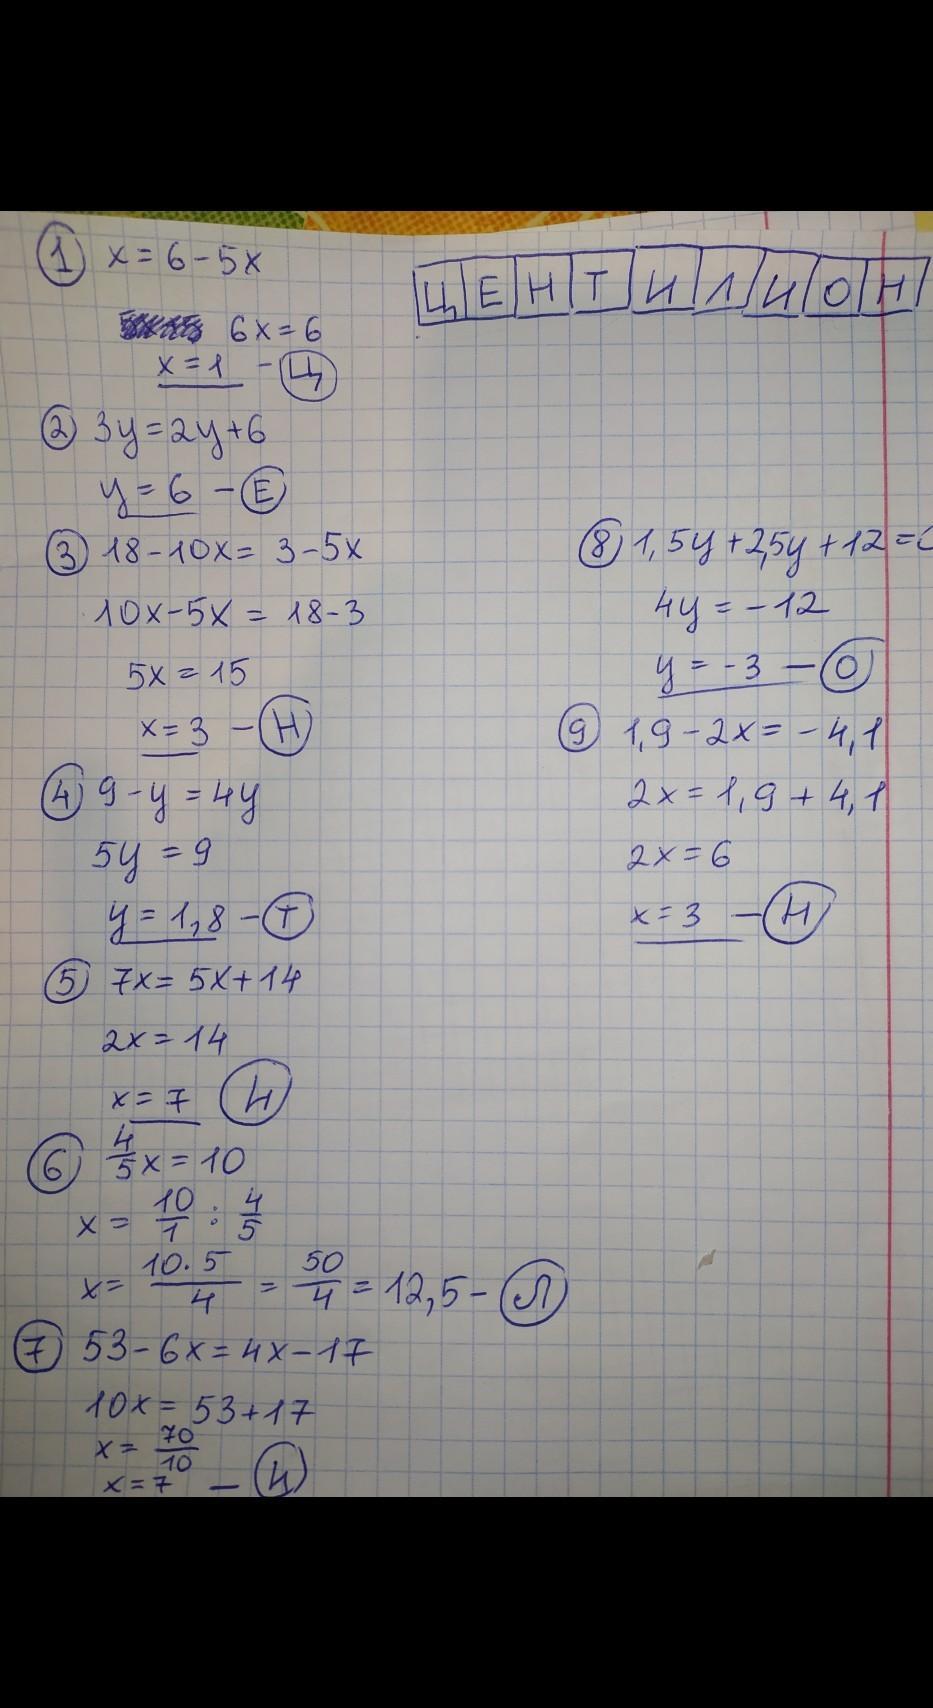 ① x = 6 - 5x
6x = 6
x = 1 - Ц
② 3y = 2y + 6
y = 6 - Е
③ 18 - 10x = 3 - 5x
10x - 5x = 18 - 3
5x = 15
x = 3 - Н
④ 9 - y = 4y
5y = 9
y = 1,8 - Т
⑤ 7x = 5x + 14
2x = 14
x = 7 И
⑥ 4/5 x = 10
x = 10/1 : 4/5
x = 10·5/4 = 50/4 = 12,5 - Л
⑦ 53 - 6x = 4x - 17
10x = 53 + 17
x = 70/10
x = 7 - И
ЦЕНТИЛИОН
⑧ 1,5y + 2,5y + 12 =
4y = -12
y = -3 - О
⑨ 1,9 - 2x = -4,1
2x = 1,9 + 4,1
2x = 6
x = 3 - Н